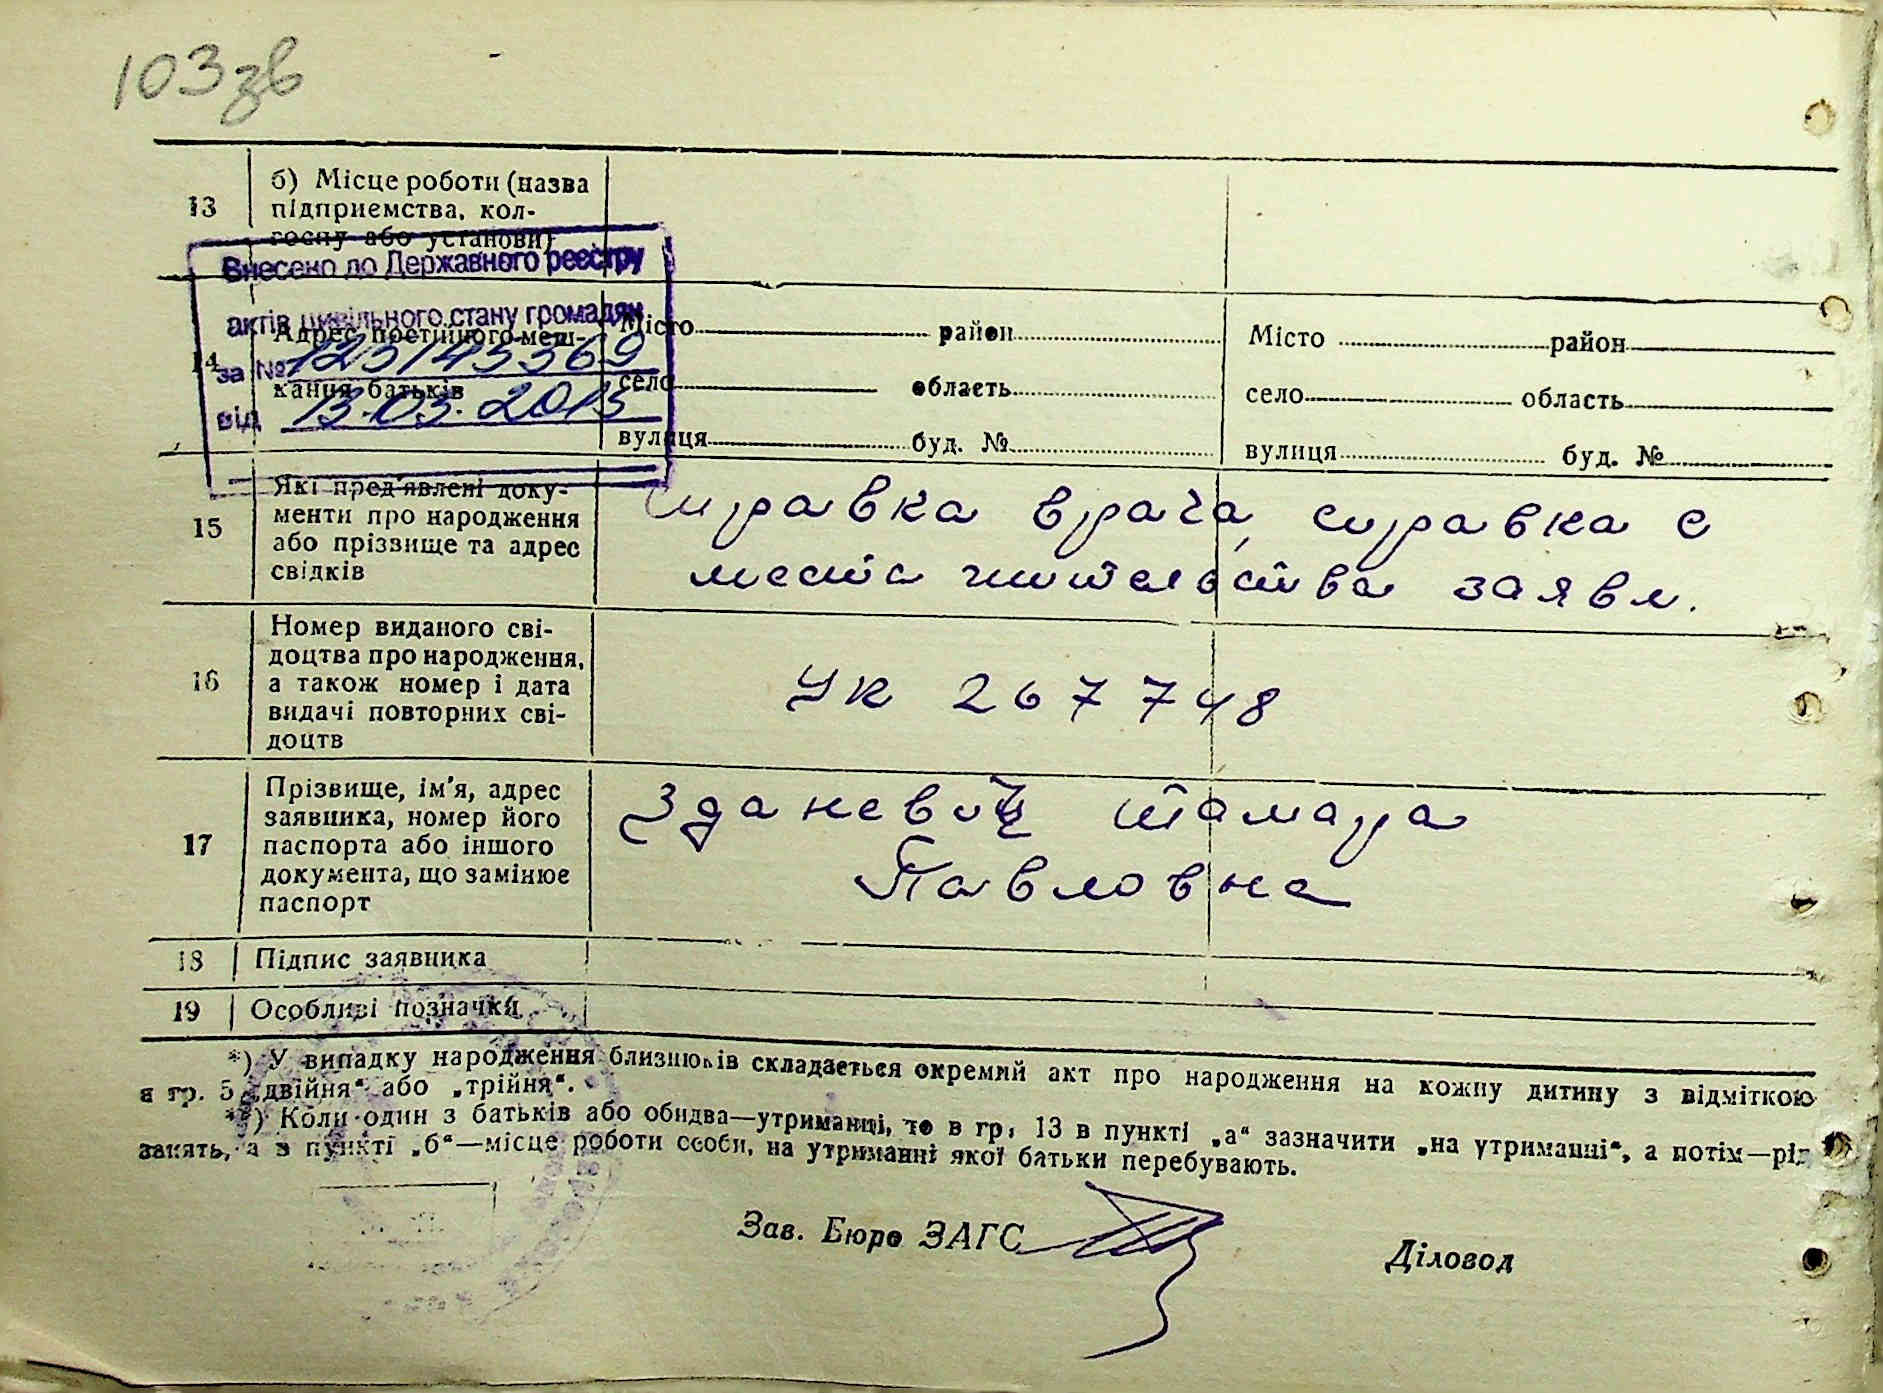 103 зв
13
б) Місце роботи (назва
підприємства, кол-
госпу або установи)
Внесено до Державного реєстру
актів цивільного стану громадян
за №
від 13.03.2015
14
Адрес постійного меш-
кання батьків
Місто район
село область
вулиця буд. №
Місто район
село область
вулиця буд. №
15
Які пред'явлені доку-
менти про народження
або прізвище та адрес
свідків
Справка врача, справка с
места жительства заявл.
16
Номер виданого сві-
доцтва про народження,
а також номер і дата
видачі повторних сві-
доцтв
УК 267748
17
Прізвище, ім'я, адрес
заявника, номер його
паспорта або іншого
документа, що замінює
паспорт
Зданевич Тамара
Павловна
18 Підпис заявника
19 Особливі позначки
*) У випадку народження близнюків складається окремий акт про народження на кожну дитину з відміткою
в гр. 5 „двійня“ або „трійня“.
**) Коли один з батьків або обидва—утриманці, то в гр. 13 в пункті „а“ зазначити „на утриманні“, а потім—рід
занять, а в пункті „б“—місце роботи особи, на утриманні якої батьки перебувають.
Зав. Бюро ЗАГС
Діловод